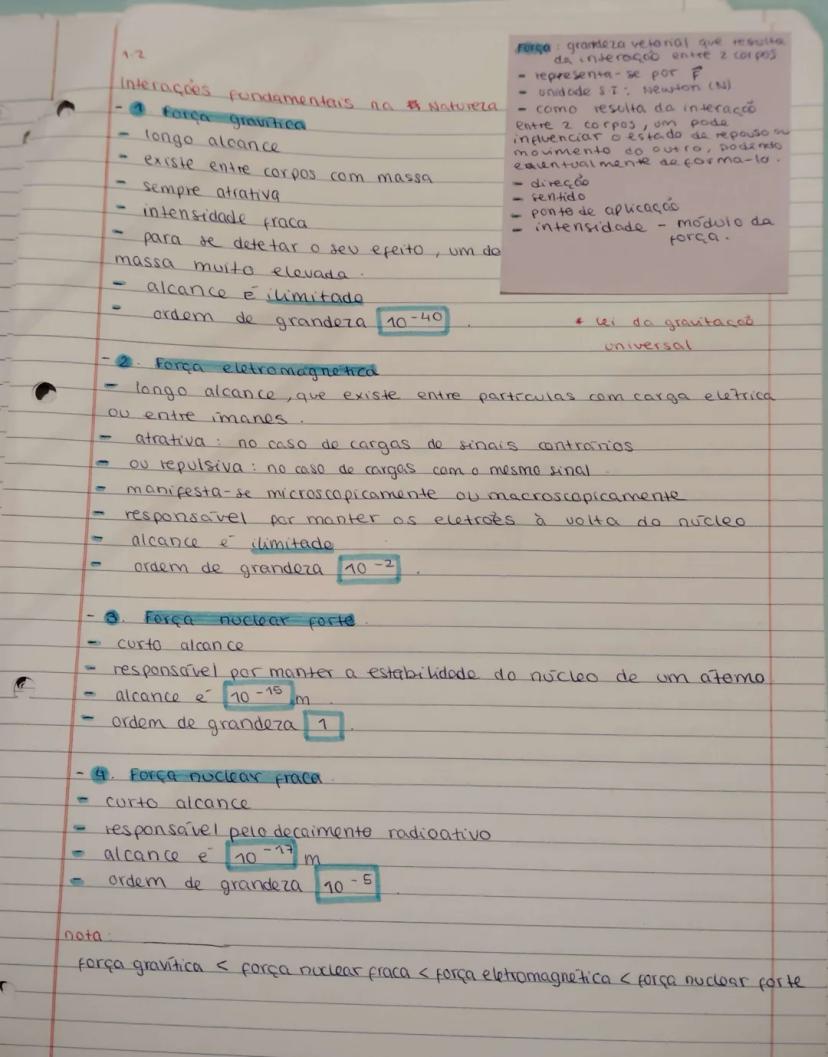 1.2
Interações fundamentais na Natureza
- 1 Força gravítica
- longo alcance
- existe entre corpos com massa
- sempre atrativa
- intensidade fraca
- para se detetar o seu efeito, um do
massa muito elevada.
- alcance é ilimitado
- ordem de grandeza 10^-40.
Força: grandeza vetorial que resulta
da interação entre 2 corpos
- representa-se por F⃗
- unidade SI: Newton (N)
- como resulta da interação
entre 2 corpos, um pode
influenciar o estado de repouso ou
movimento do outro, podendo
eventualmente deforma-lo.
- direção
- sentido
- ponto de aplicação
- intensidade - módulo da
força.
* lei da gravitação
universal
- 2. Força eletromagnética
- longo alcance, que existe entre partículas com carga elétrica
ou entre imanes.
- atrativa: no caso de cargas de sinais contrários
- ou repulsiva: no caso de cargas com o mesmo sinal
- manifesta-se microscopicamente ou macroscopicamente
- responsável por manter os eletrões à volta do núcleo
- alcance é ilimitado
- ordem de grandeza 10^-2.
- 3. Força nuclear forte
- curto alcance
- responsável por manter a estabilidade do núcleo de um átomo
- alcance é 10^-15 m
- ordem de grandeza 1.
- 4. Força nuclear fraca
- curto alcance
- responsável pelo decaimento radioativo
- alcance é 10^-17 m
- ordem de grandeza 10^-5
nota:
força gravítica < força nuclear fraca < força eletromagnética < força nuclear forte